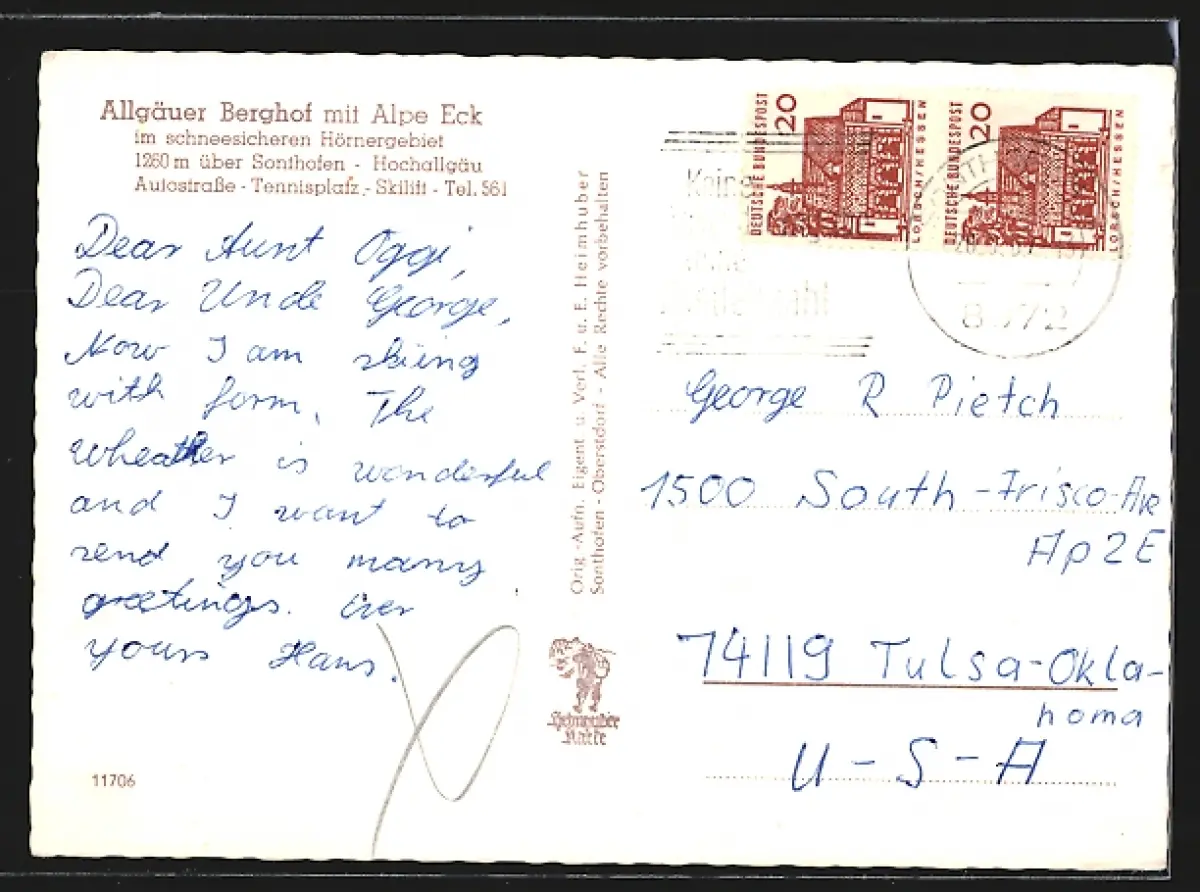 Allgäuer Berghof mit Alpe Eck
im schneesicheren Hörnergebiet
1260 m über Sonthofen - Hochallgäu
Autostraße - Tennisplatz - Skilift - Tel. 561
Dear Aunt Oggi,
Dear Uncle George,
Now I am skiing
with form. The
wheather is wonderful
and I want to
send you many
greetings. Ever
yours Hans.
11706
Orig.-Aufn. Eigent u. Verl. F. u. E. Heimhuber
Sonthofen - Oberstdorf - Alle Rechte vorbehalten
DEUTSCHE BUNDESPOST
20
LORSCH/HESSEN
DEUTSCHE BUNDESPOST
20
LORSCH/HESSEN
Keine
8972
George R Pietch
1500 South-Frisco-Ave
Ap 2E
74119 Tulsa-Okla-
homa
U-S-A